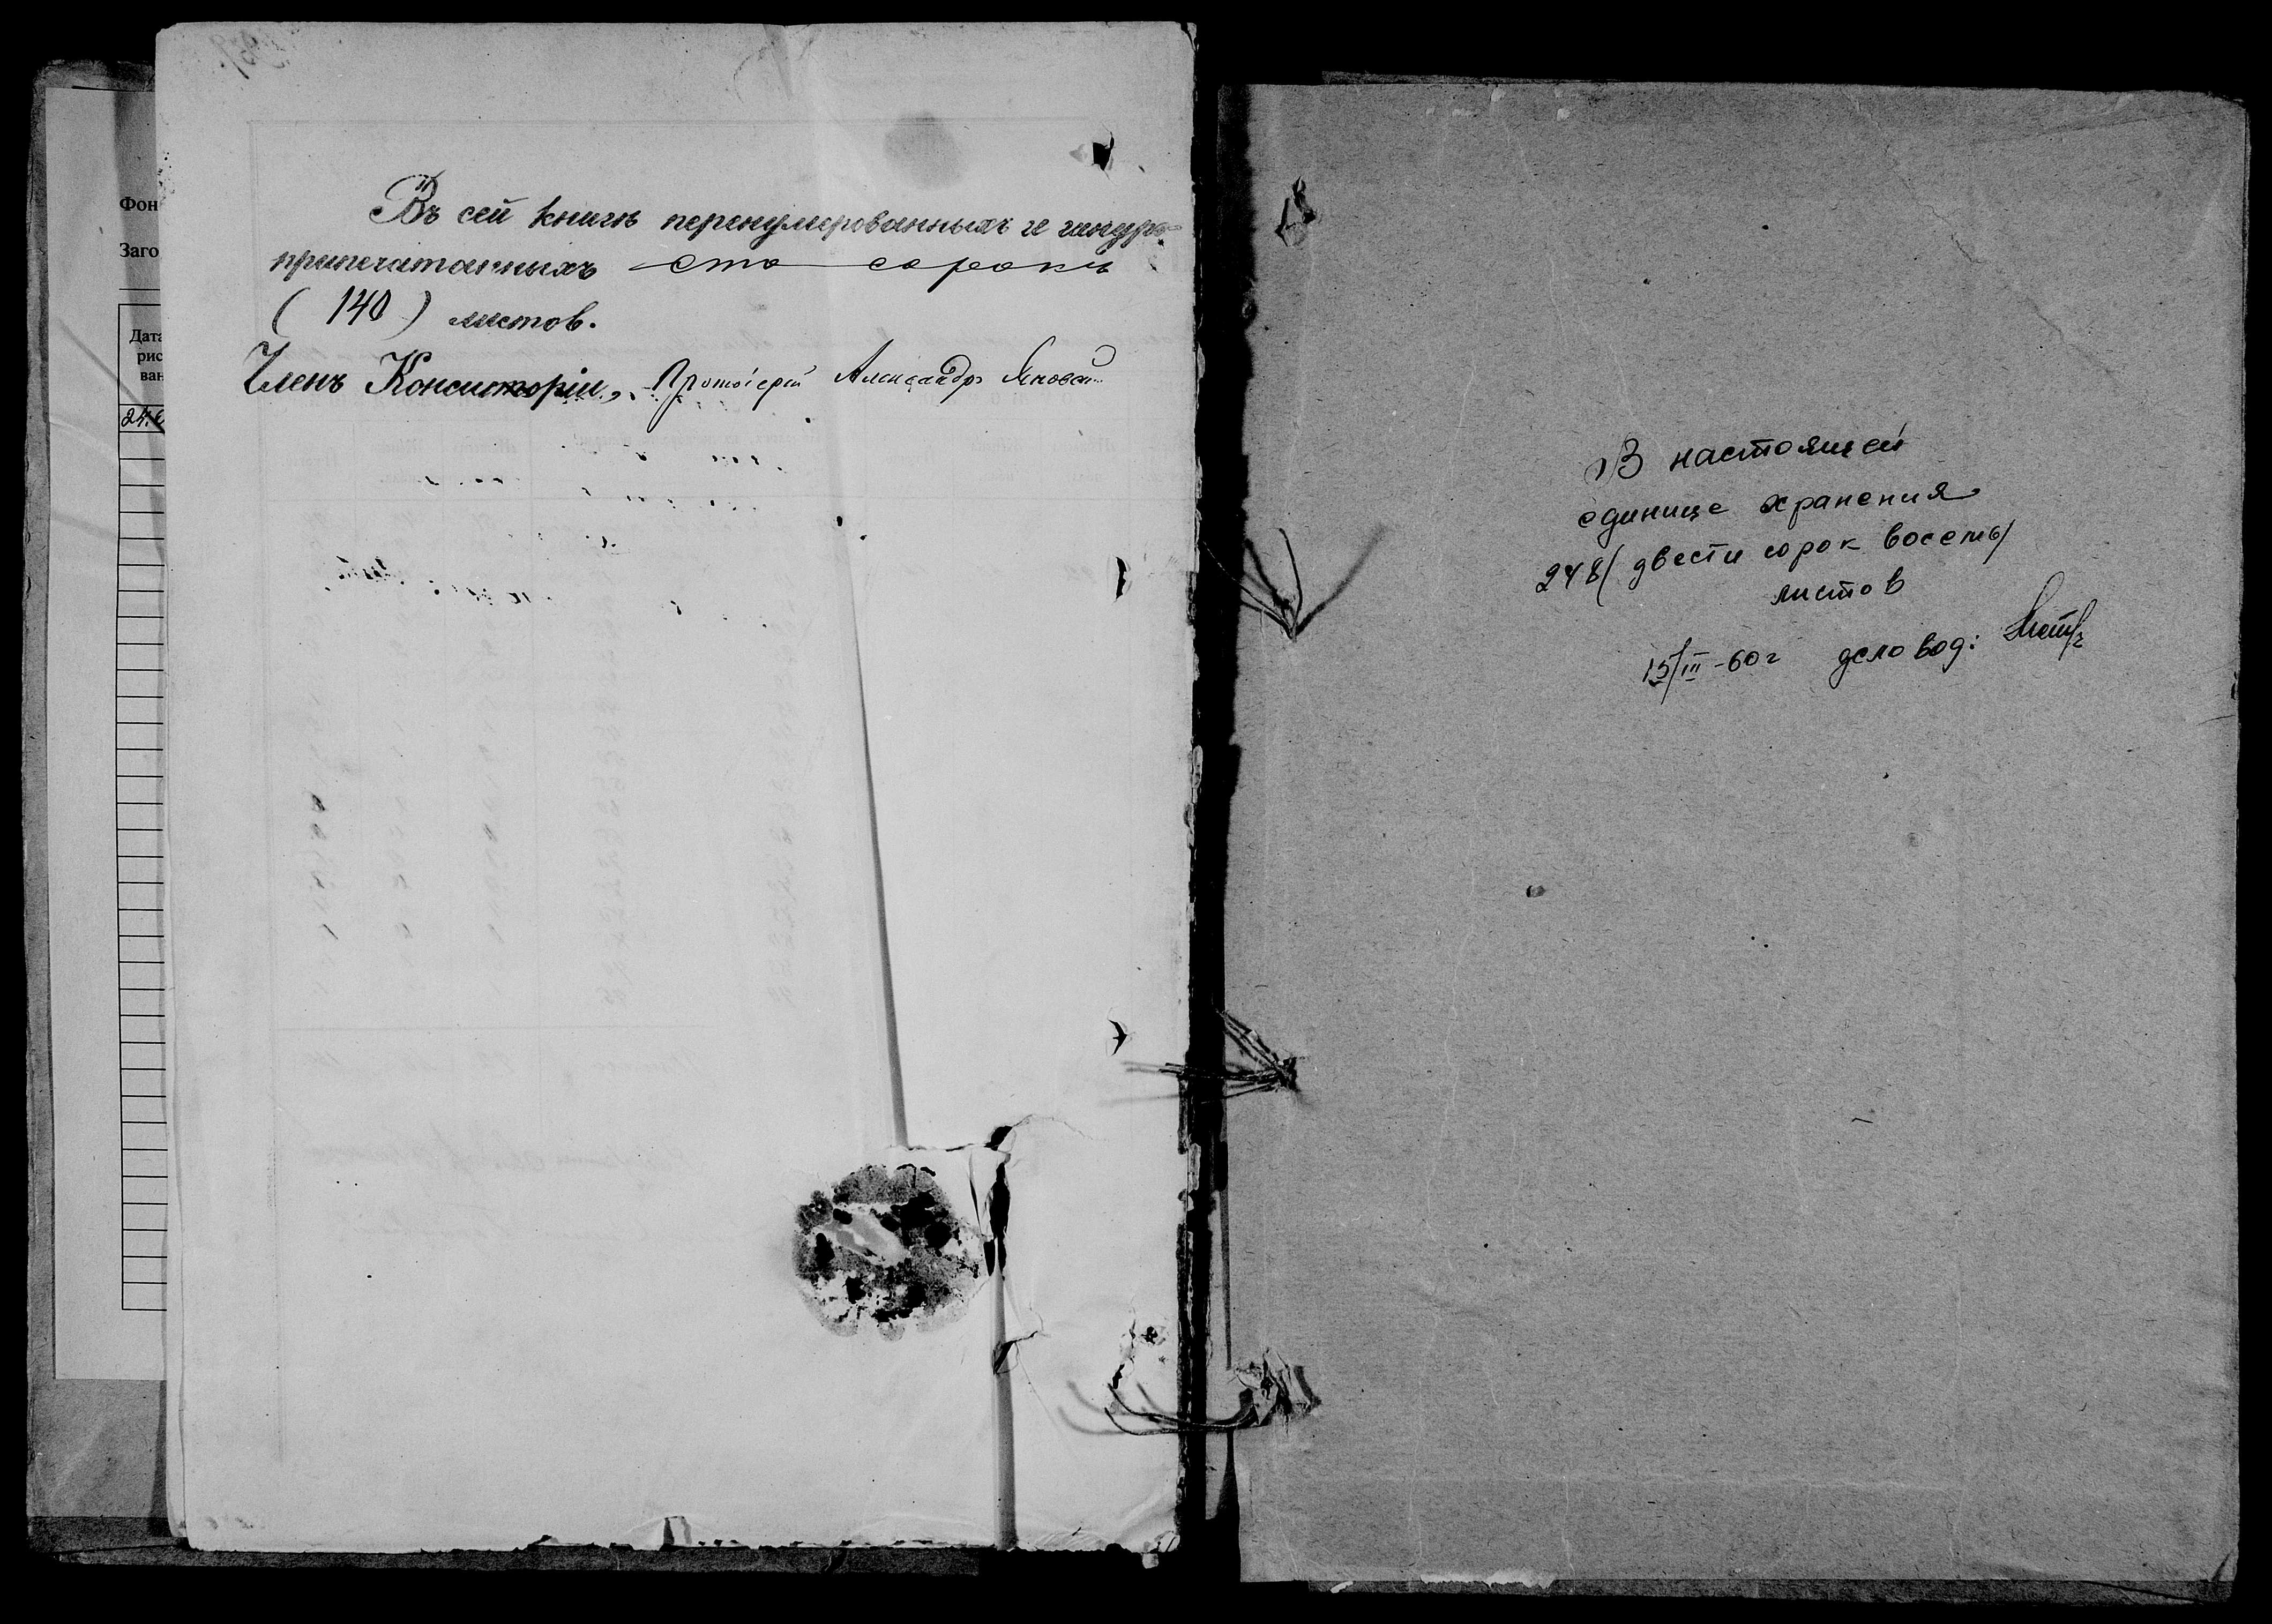 Фон
Заго
Дата
рис
ван
24.
Въ сей книгѣ перенумерованныхъ и шнуро-
припечатанныхъ сто сорокъ
( 140 ) листов.
Членъ Консисторіи, Протоіерей Александръ
В настоящей
единице хранения
248 (двести сорок восемь)
листов
15/III-60г деловод: